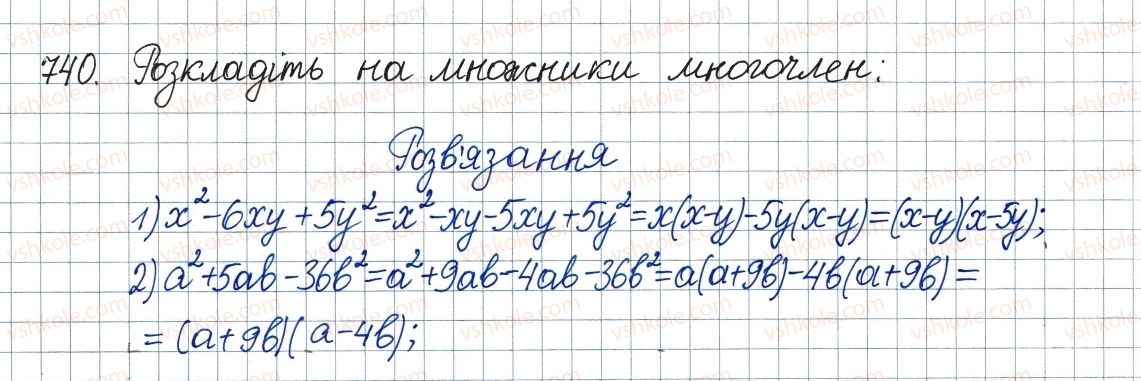 740. Розкладіть на множники многочлен:
Розв'язання
1) x² - 6xy + 5y² = x² - xy - 5xy + 5y² = x(x-y) - 5y(x-y) = (x-y)(x-5y);
2) a² + 5ab - 36b² = a² + 9ab - 4ab - 36b² = a(a+9b) - 4b(a+9b) =
= (a+9b)(a-4b);